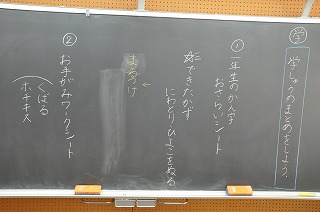 学
学しゅうのまとめをしよう。
① 一年生のかん字
おさらいシート
できたかず
にわとりひよこをぬる
まるつけ
② お手がみワークシート
くばる
ホチキス